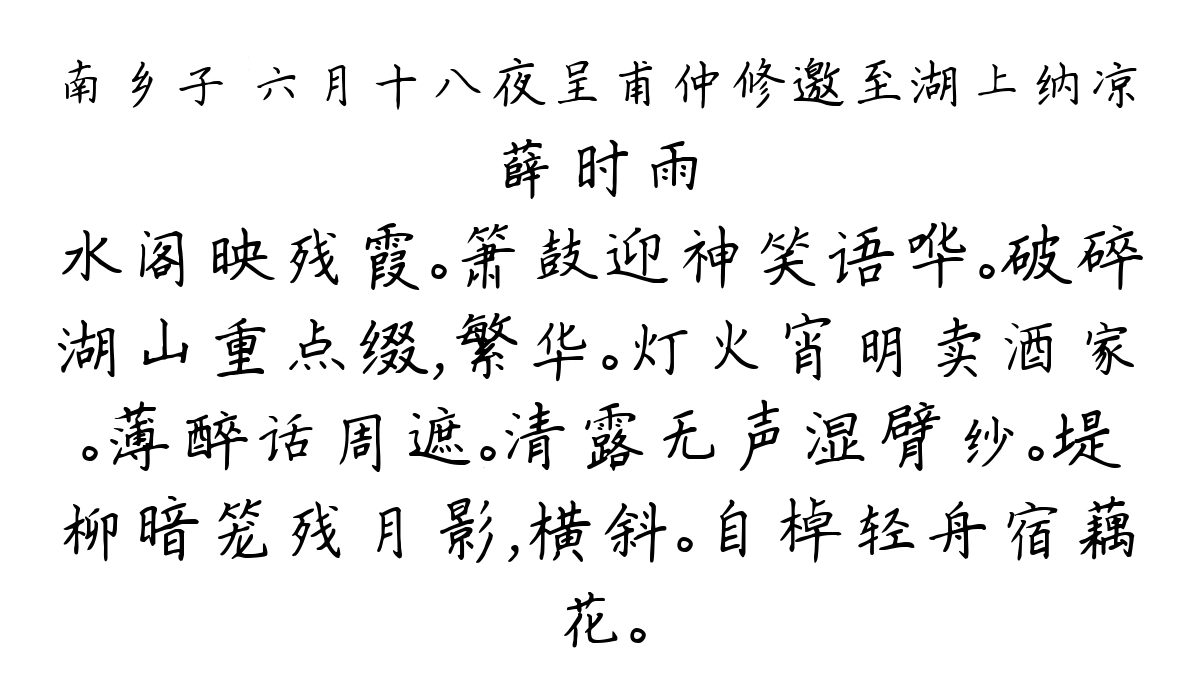 南乡子 六月十八夜呈甫仲修邀至湖上纳凉
薛时雨
水阁映残霞。箫鼓迎神笑语哗。破碎
湖山重点缀,繁华。灯火宵明卖酒家
。薄醉话周遮。清露无声湿臂纱。堤
柳暗笼残月影,横斜。自棹轻舟宿藕
花。